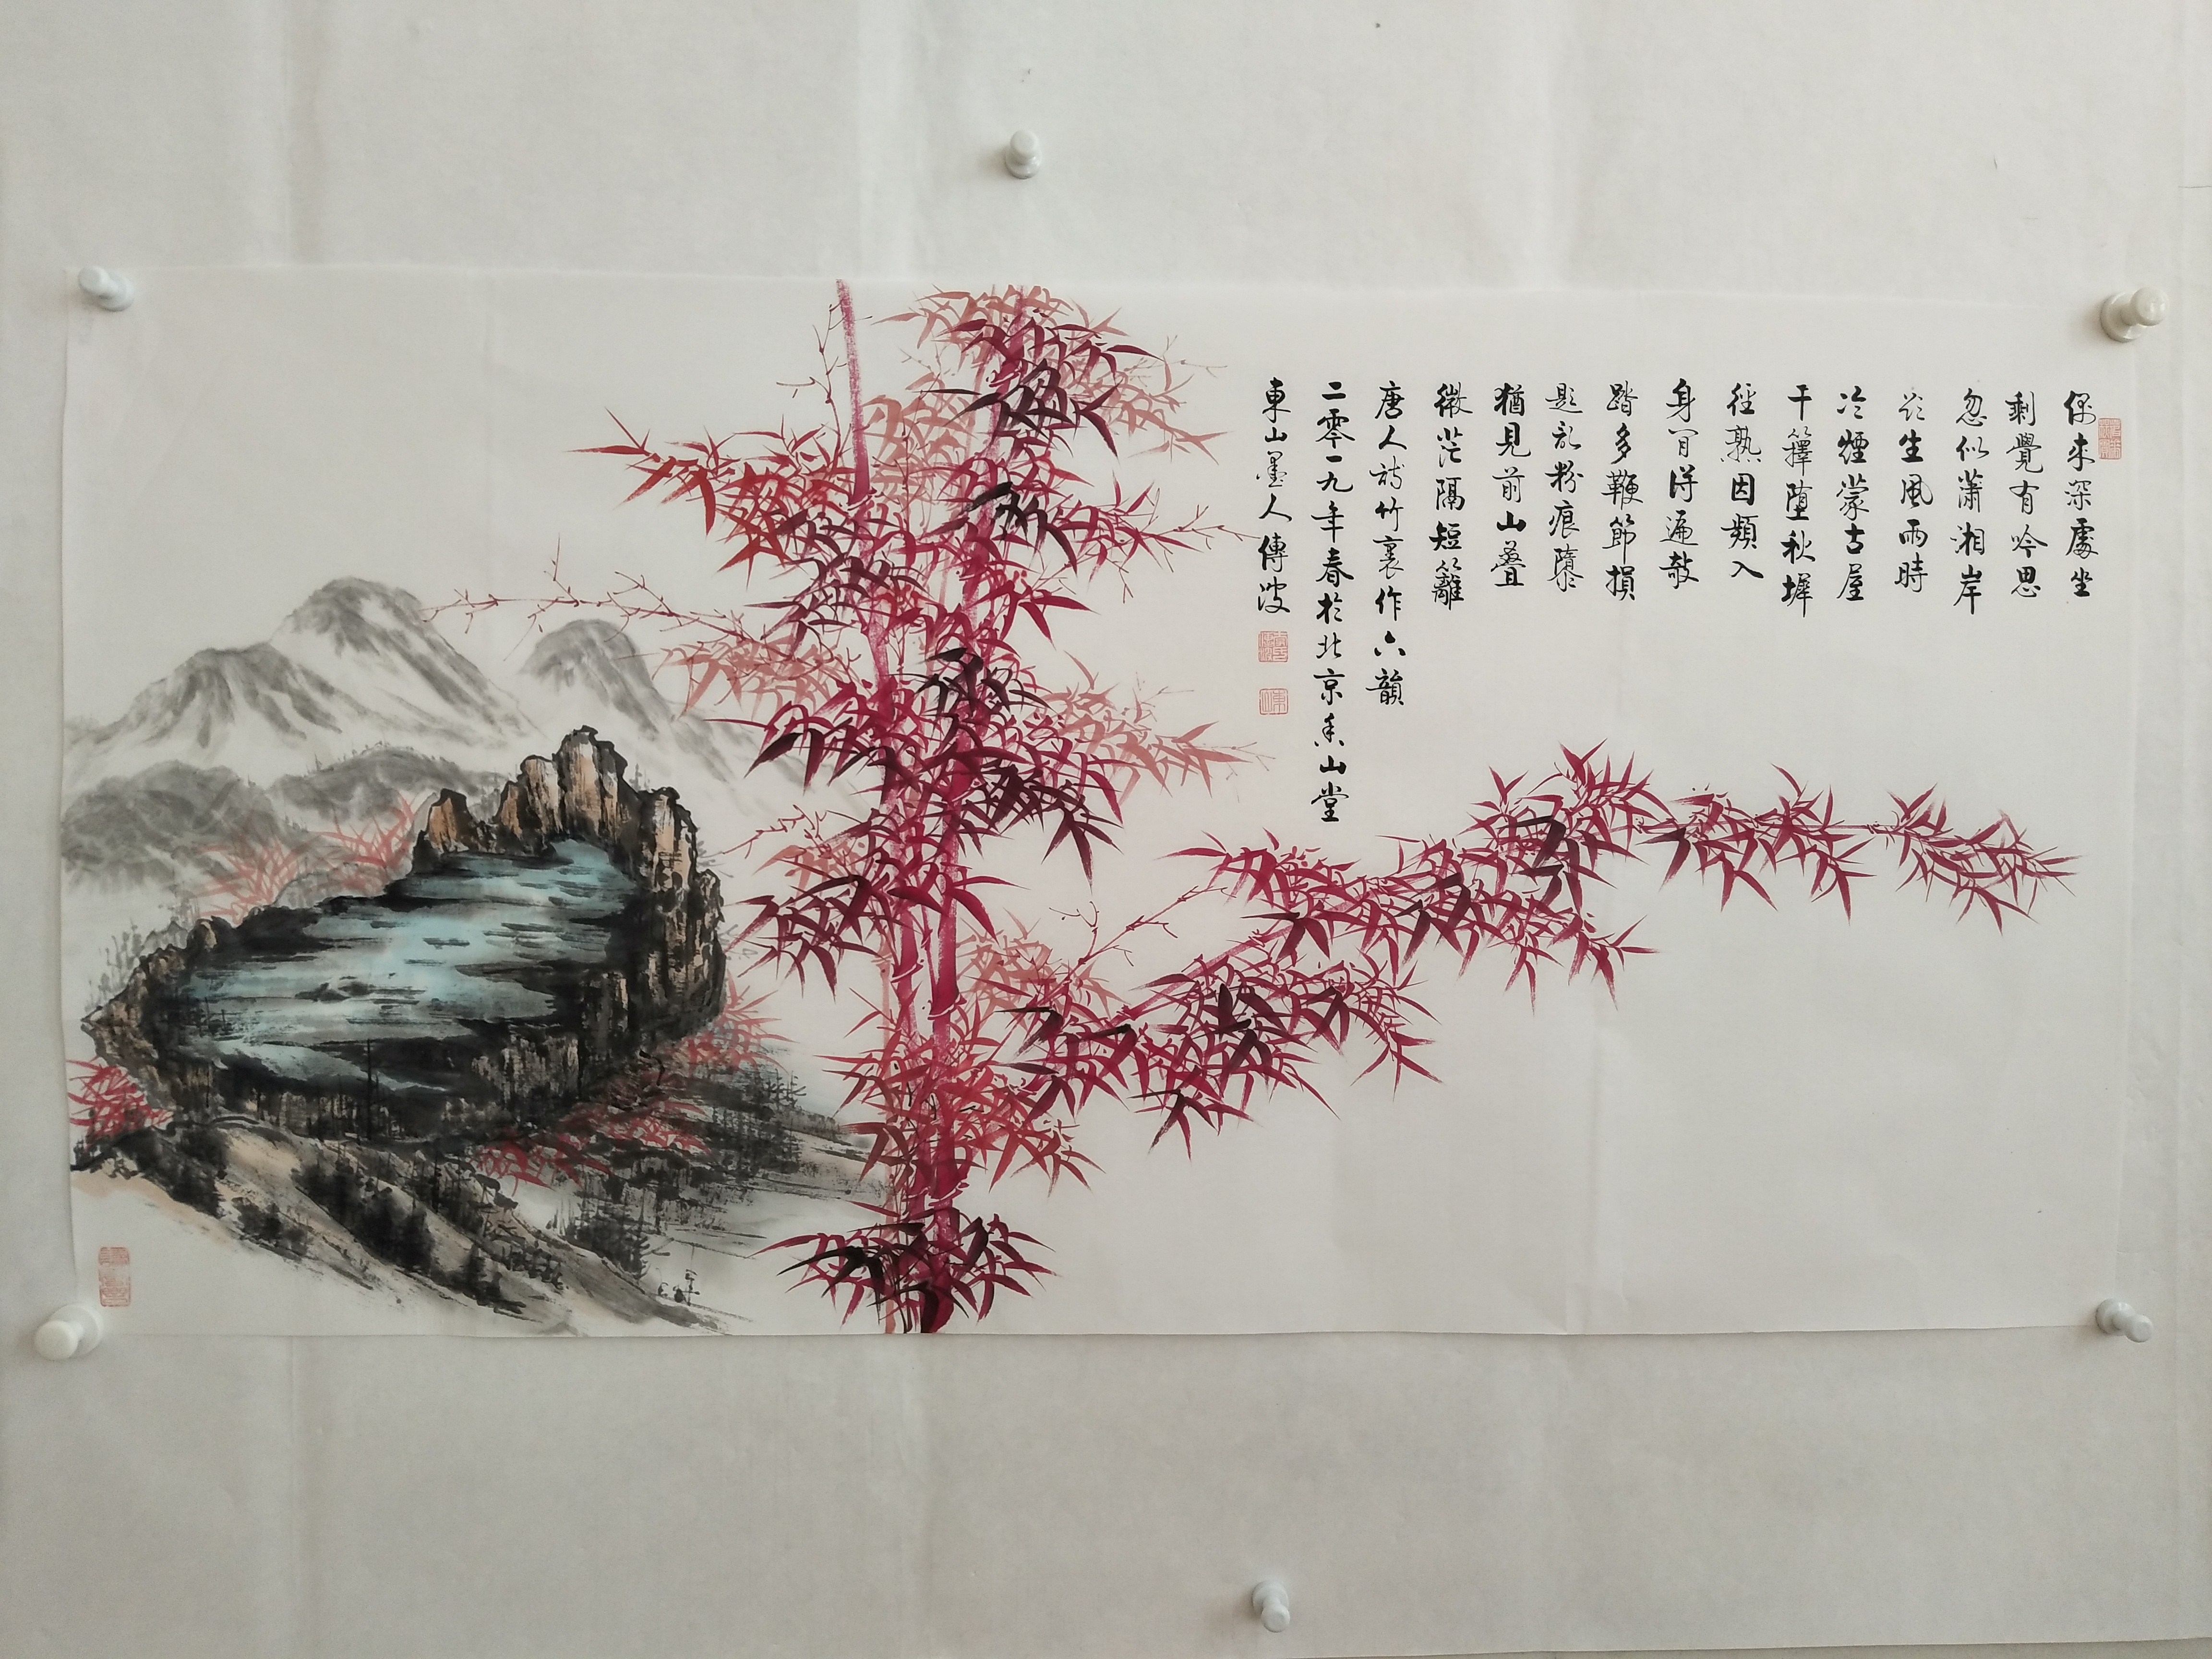 偶来深處坐
剩覺有吟思
忽似瀟湘岸
欻生風雨時
冷煙蒙古屋
干籜墮秋墀
徑熟因頻入
身閒得遍敲
踏多鞭節損
題亂粉痕隳
猶見前山疊
微茫隔短籬
唐人詩竹裏作六韻
二零一九年春於北京香山堂
東山墨人傅波